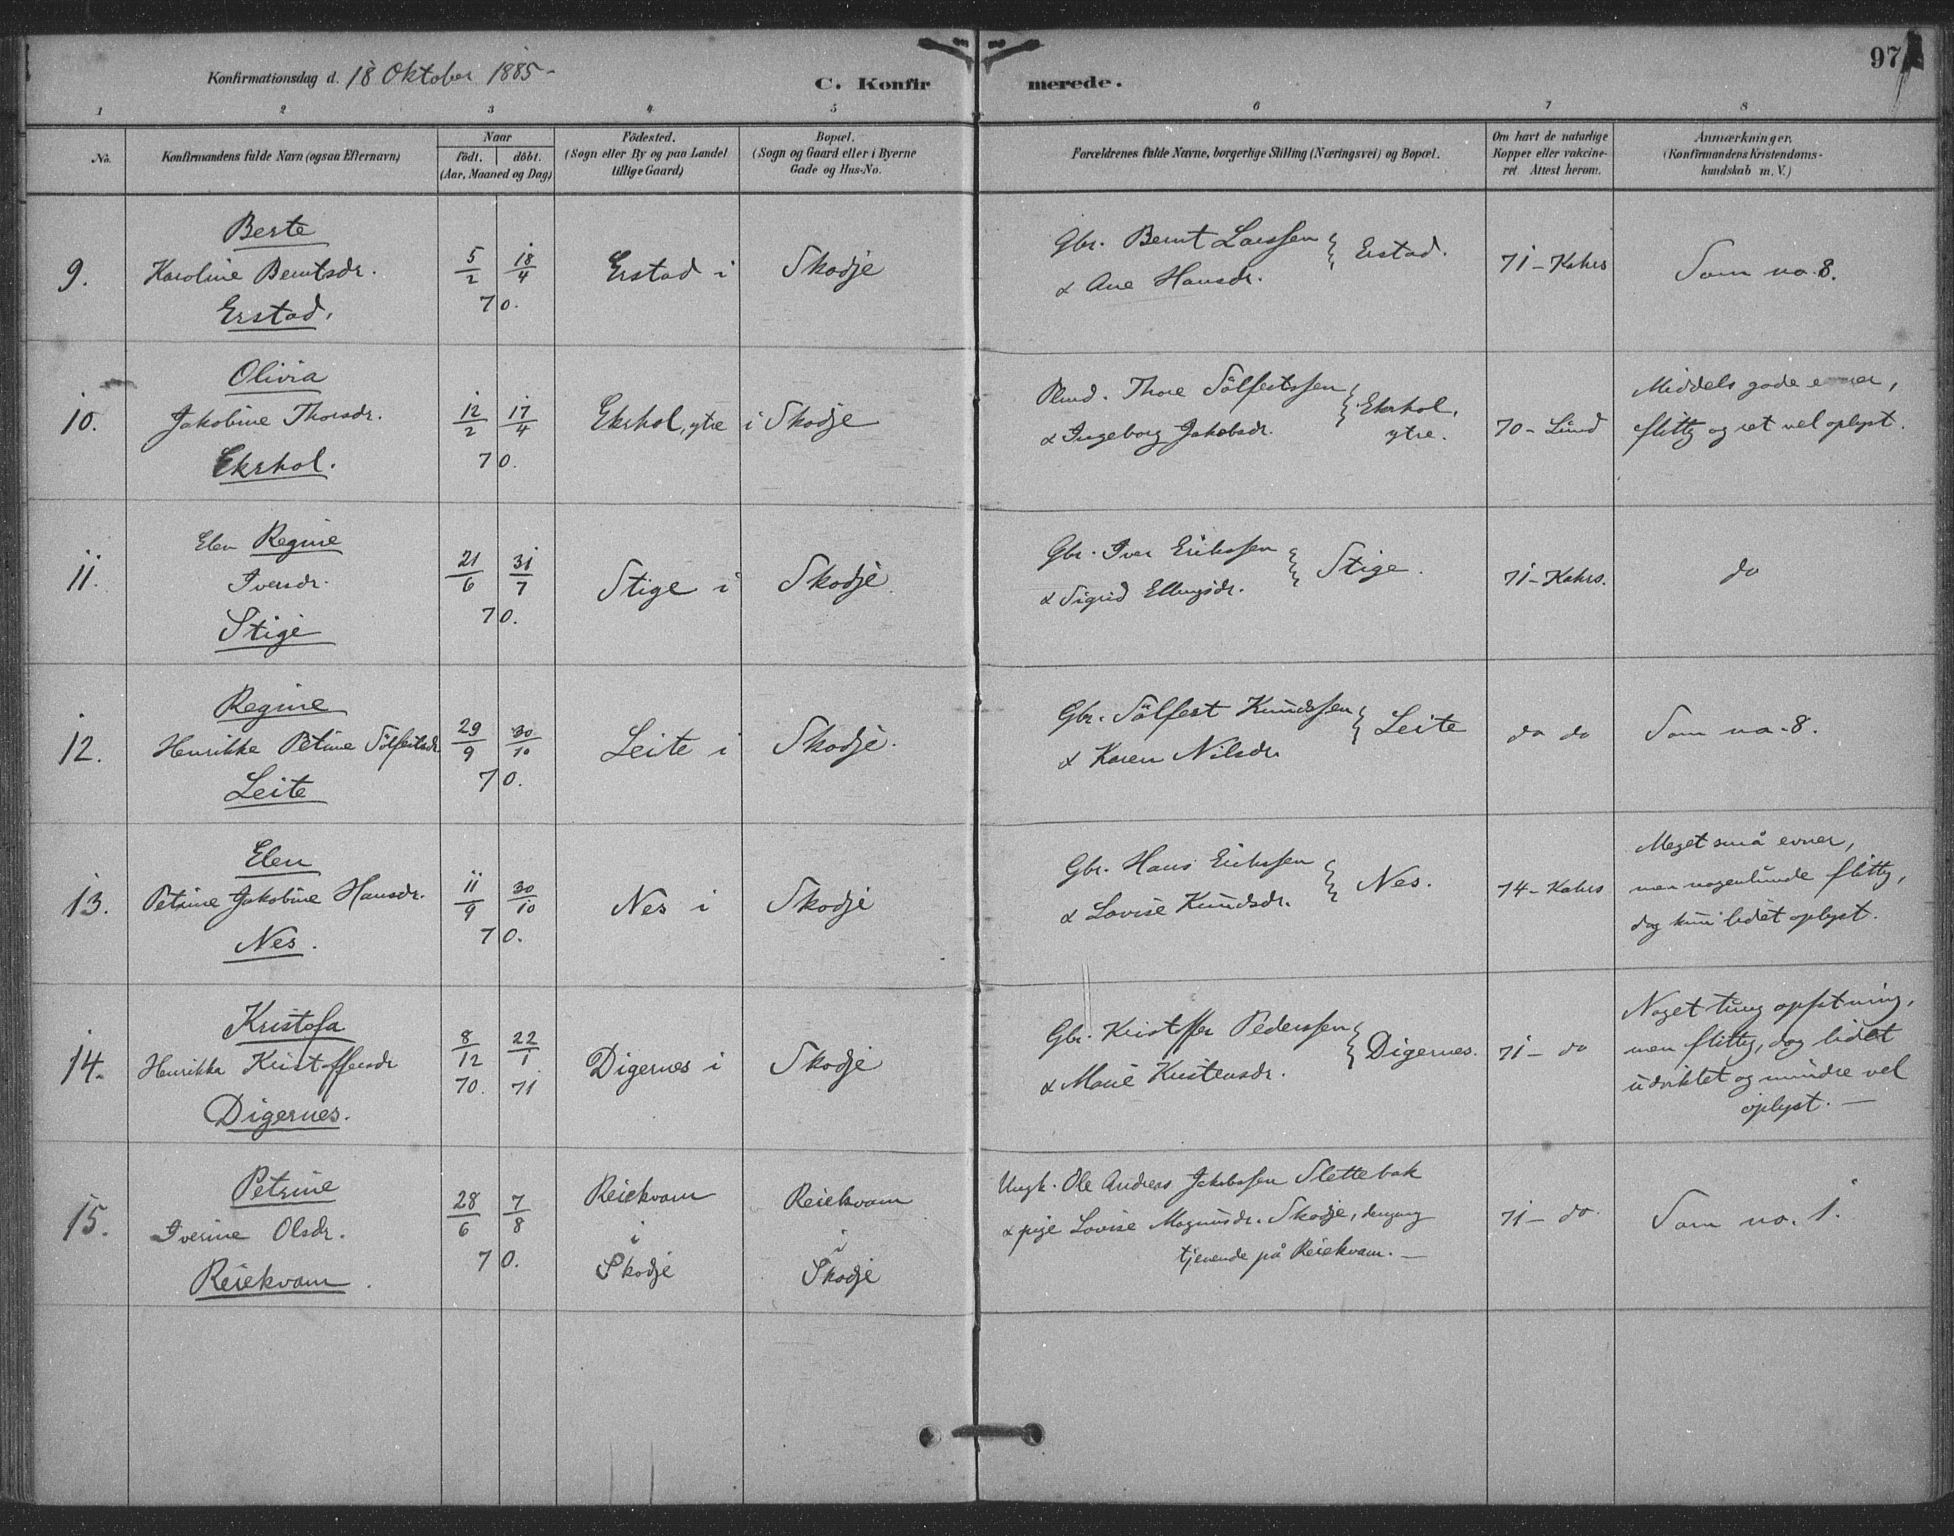 97
Konfirmationsdag d. 18 Oktober 1885 -
C. Konfirmerede.
1 2 3 4 5 6 7 8
No.
Konfirmandens fulde Navn (ogsaa Efternavn)
Naar
födt. döbt.
(Aar, Maaned og Dag)
Födested.
(Sogn eller By og paa Landet
tillige Gaard)
Bopæl.
(Sogn og Gaard eller i Byerne
Gade og Hus-No.
Forældrenes fulde Navne, borgerlige Stilling (Næringsvei) og Bopæl.
Om havt de naturlige
Kopper eller vakcine-
ret. Attest herom.
Anmærkninger.
(Konfirmandens Kristendoms-
kundskab m. V.)
9.
Berte
Karoline Berntsdr.
Erstad.
5/2 18/4
70.
Erstad i Skodje
Gbr. Bernt Larssen
& Ane Hansdr.
Erstad.
71 - Kahrs
Som no. 8.
10.
Olivia
Jakobine Thorsdr.
Ekrhol.
12/2 17/4
70.
Ekrhol, ytre i Skodje
Thore Sölfestssen
& Ingeborg Jakobsdr.
Ekrhol,
ytre.
70 - Lund
Middels gode evner,
flittig og ret vel oplyst.
11.
Elen Regine
Iversdr.
Stige
21/6 31/7
70.
Stige i Skodje
Gbr. Iver Erikssen
& Sigrid Ellingsdr.
Stige.
71 - Kahrs.
do
12.
Regine
Henrikke Petine Sölfestsdr
Leite
29/9 30/10
70.
Leite i Skodje.
Gbr. Sölfest Knudssen
& Karen Nilsdr.
Leite
do do
Som no. 8.
13.
Elen
Petrine Jakobine Hansdr.
Nes.
11/9 30/10
70.
Nes i Skodje
Gbr. Hans Erikssen
& Lovise Knudsdr.
Nes.
74 - Kahrs
Meget små evner,
men nogenlunde flittig,
dog kun lidet oplyst.
14.
Kristofa
Henrikka Kristoffersdr
Digernes.
8/12 22/1
70. 71
Digernes i Skodje
Gbr. Kristoffer Pederssen
& Marie Kristensdr.
Digernes.
71 - do
Noget tung opfatning,
men flittig, dog lidet
udviklet og mindre vel
oplyst. -
15.
Petrine
Iverine Olsdr.
Reiekvam.
28/6 7/8
70.
Reiekvam
i
Skodje
Reiekvam
i
Skodje
Ungk. Ole Andreas Jakobssen Slettebak
& pige Lovise Magnusdr. Skodje, dengang
tjenende på Reiekvam. -
71 - do.
Som no. 1.